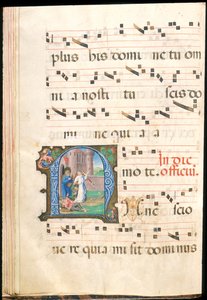 plus his domi ne tu om
ni a nosti tu scis do
mi ne qui a a
In die
mo te. officiū.
Nunc scio
ve re qui a mi sit dominus